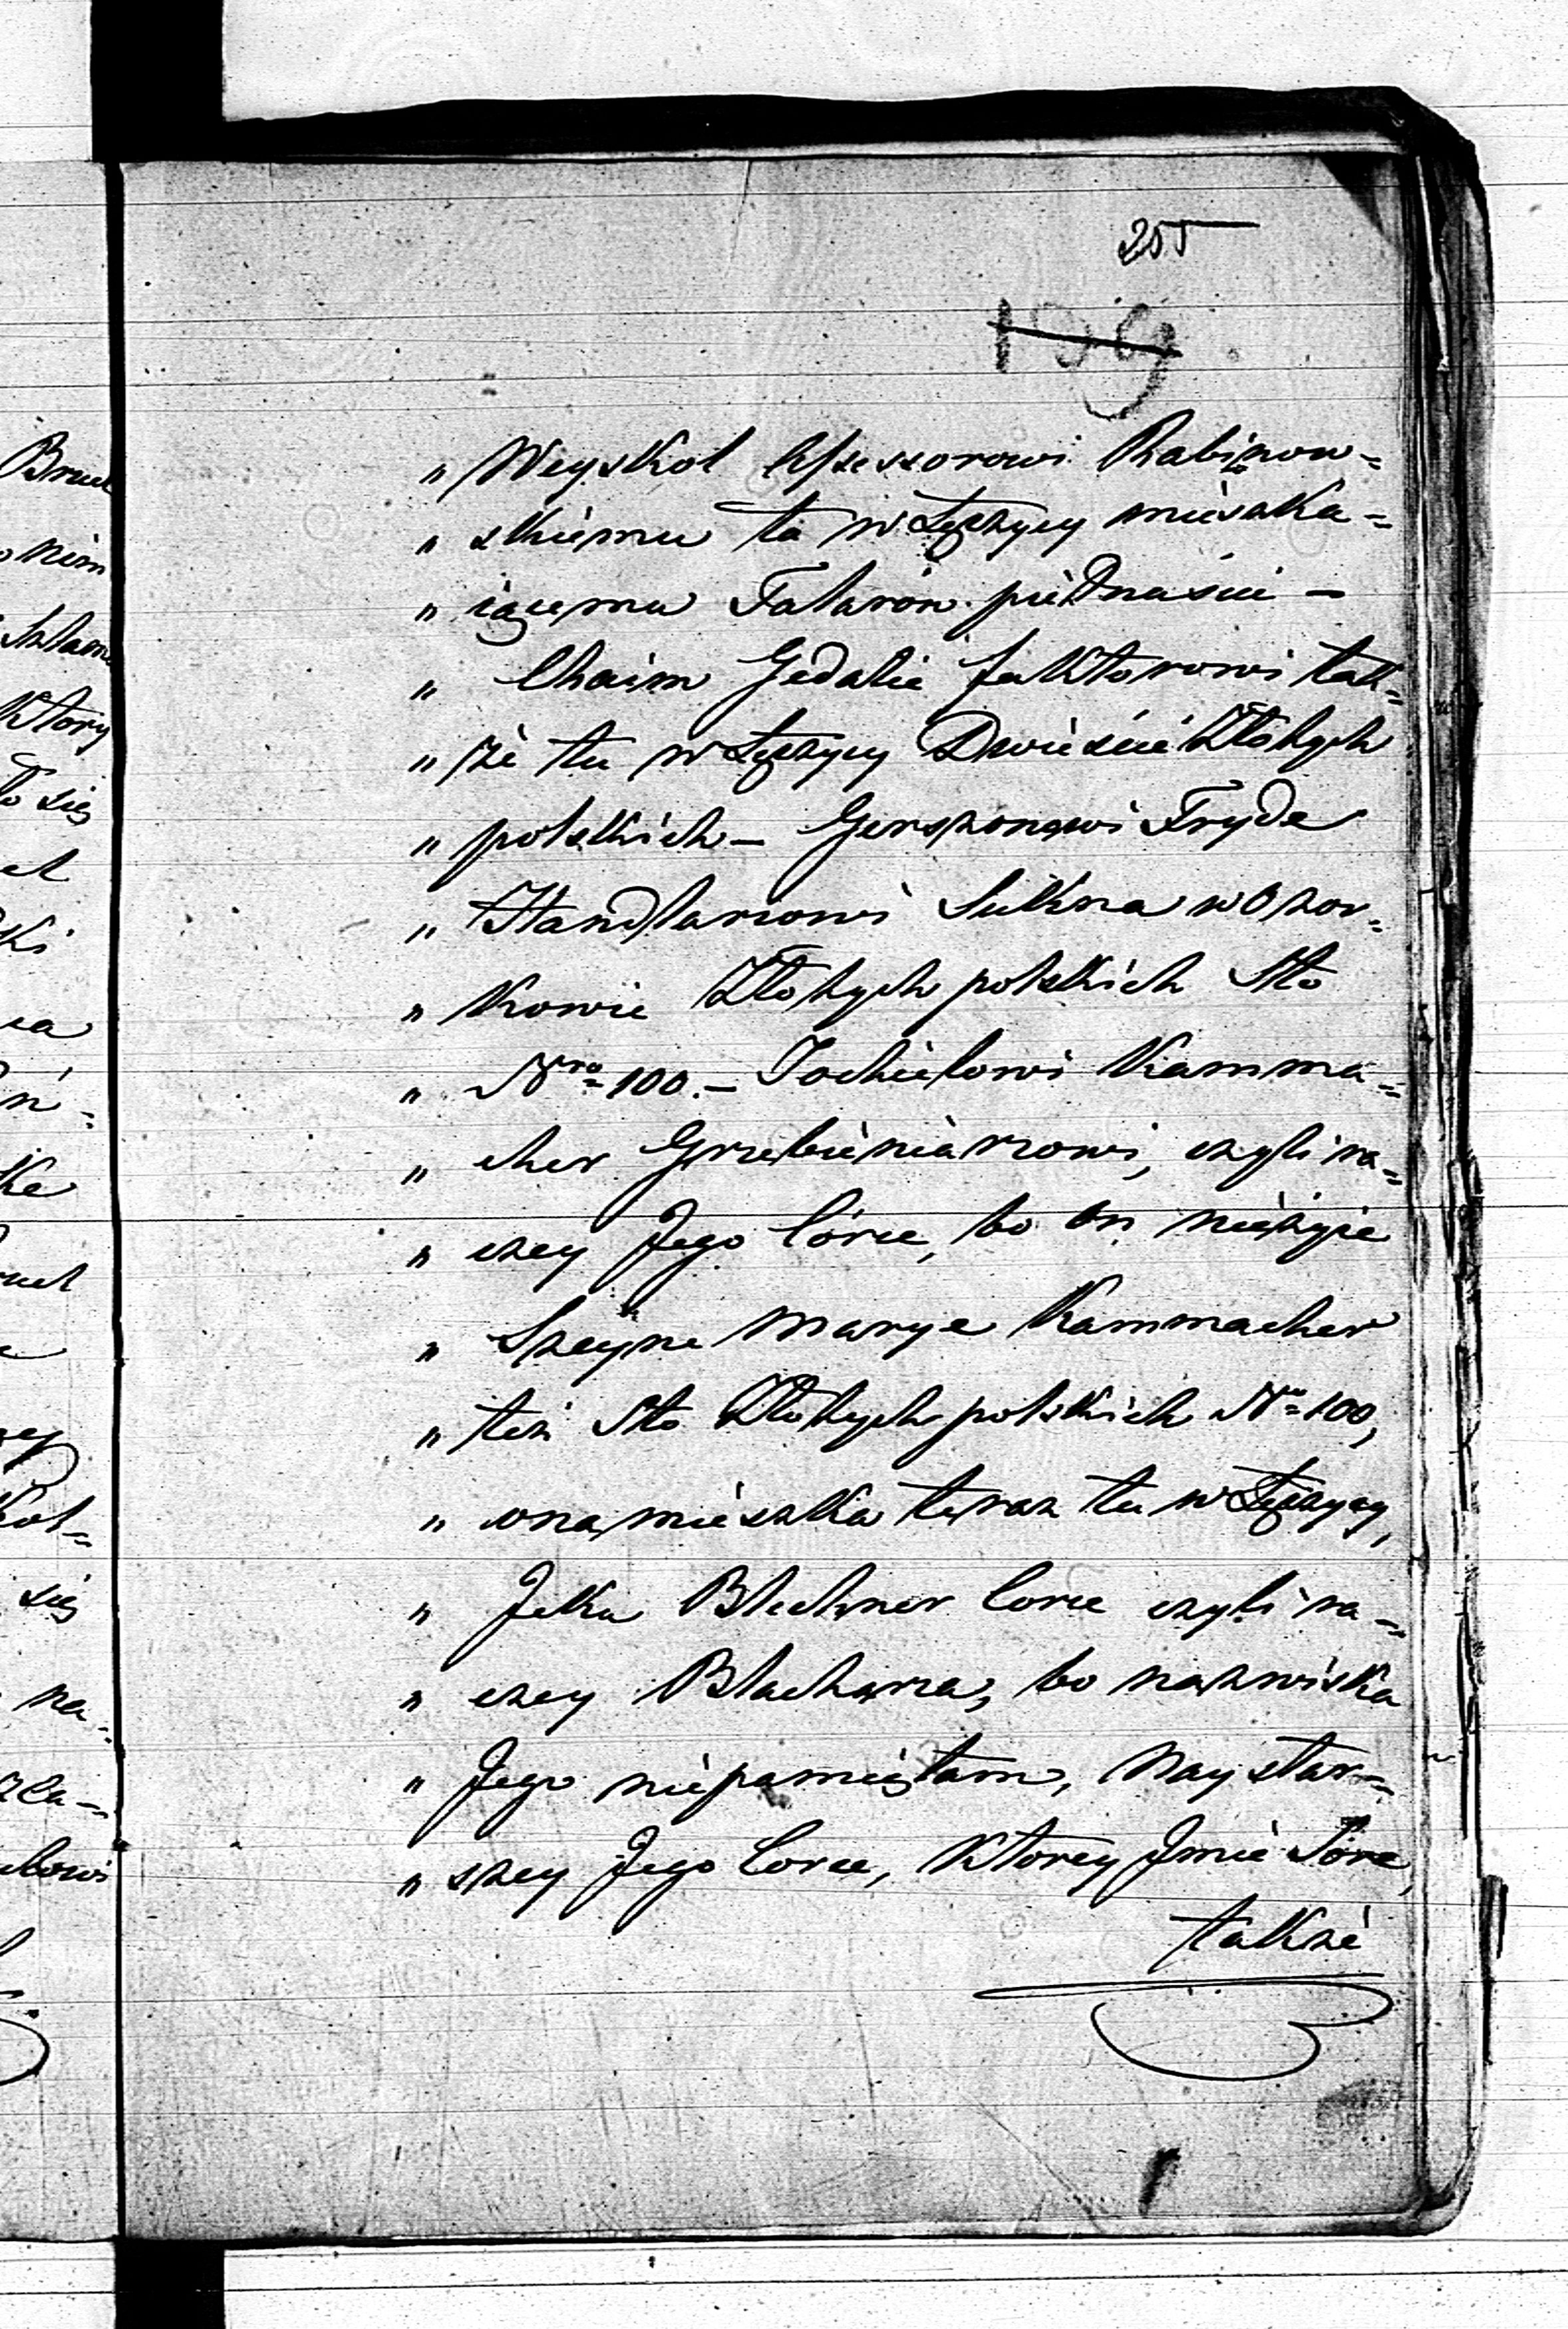 205
199
" Weyskol Assessorowi Rabinow-
" skiemu tu w Łęczycy mieszka-
" iącemu Talarów piętnaście —
" Chaim Gedalie faktorowi tak-
" że tu w Łęczycy Dwieście Złotych
" polskich — Gerszonowi Fryde
" Handlarzowi Sukna w Ozor-
" kowie Złotych polskich Sto
" Nro 100. — Jochielowi Kamma-
" cher Grzebieniarzowi, czyli ra-
" czey Jego Córce, bo on nieżyie
" Szeyne Marye Kammacher
" też Sto Złotych polskich No 100,
" ona mieszka teraz tu w Łęczycy,
" Jcku Blechner Corce czyli ra-
" czey Blacharza, bo nazwiska
" Jego niepamiętam, Naystar-
" szey Jego Corce, Ktorey Jmie Sóre,
także
Bruch
nim
Szlam
Ktory
To się
ki
ca
ń-
ke
się
na-